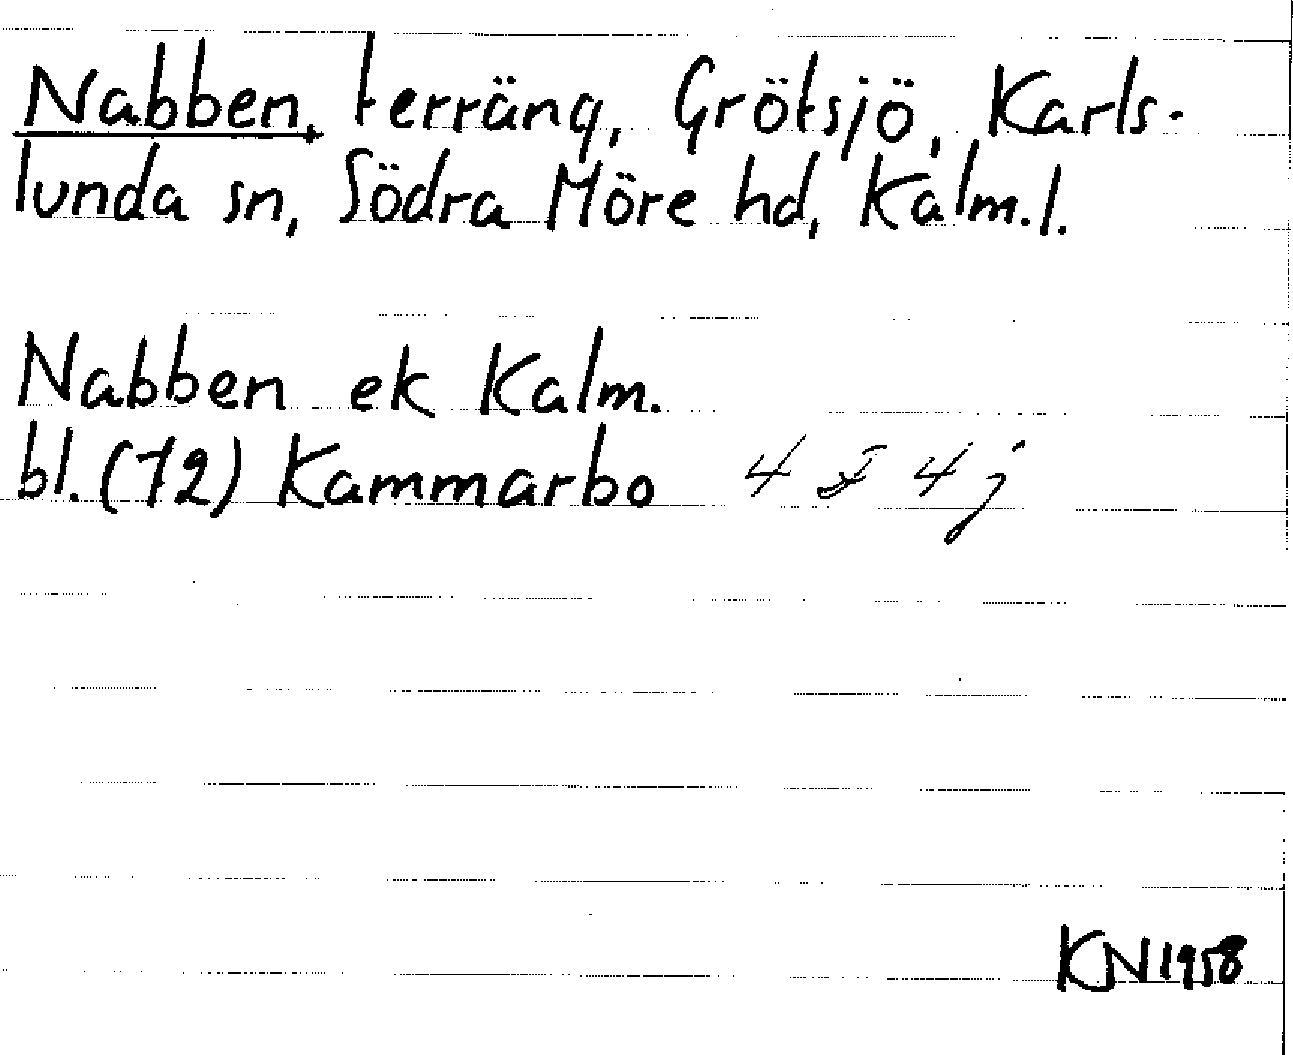 Nabben, terräng, Grötsjö, Karls-
lunda sn, Södra Möre hd, Kalm.l.
Nabben ek Kalm.
bl. (72) Kammarbo 4 F 4 j
KN 1958